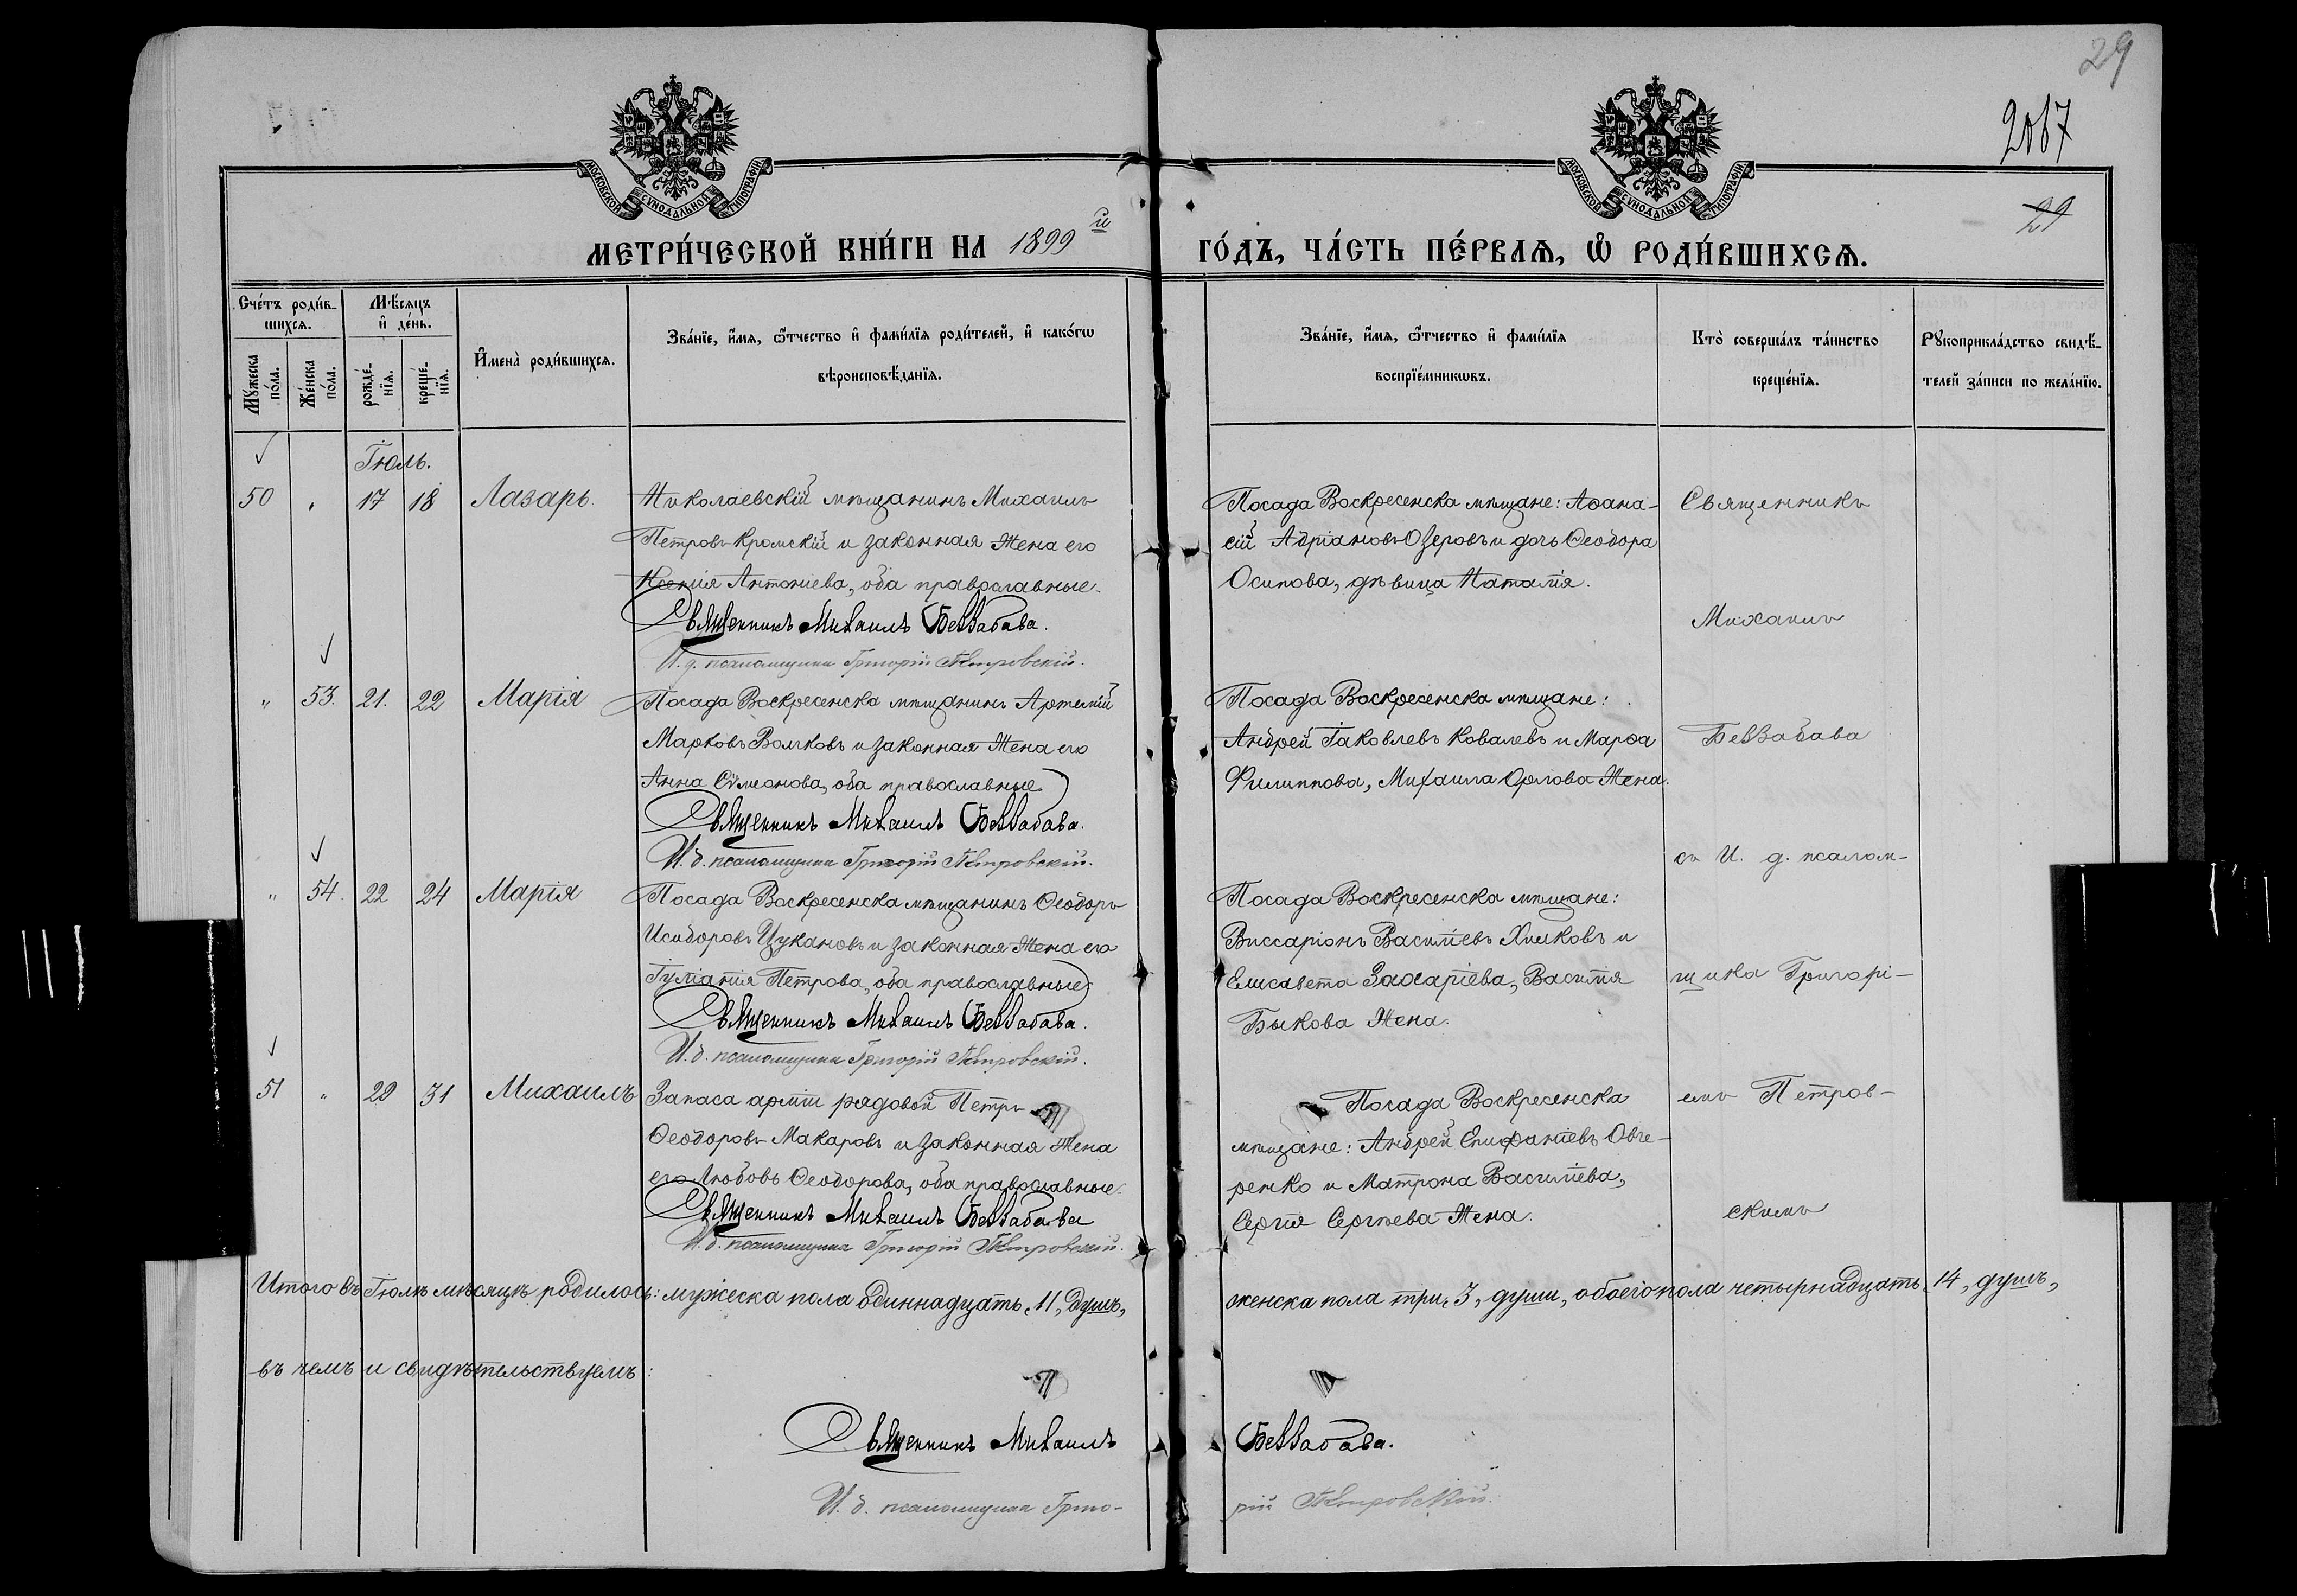 29
2067
29
МОСКОВСКОЙ СѴНОДАЛЬНОЙ ТИПОГРАФІИ.
МОСКОВСКОЙ СѴНОДАЛЬНОЙ ТИПОГРАФІИ.
МЕТРИ́ЧЕСКОЙ КНИ́ГИ НА 1899 й ГО́ДЪ, ЧА́СТЬ ПЕ́РВАѦ, Ѽ РОДИ́ВШИХСѦ.
Сче́тъ роди́в-
шихсѧ.
Мѣ́сѧцъ
и҆ де́нь.
Мꙋ́жеска
по́ла.
Же́нска
по́ла.
рожде́-
нїѧ.
креще́-
нїѧ.
И҆мена̀ роди́вшихсѧ.
Зва́нїе, и҆́мѧ, ѻ҆́тчество и҆ фами́лїѧ роди́телей, и҆ како́гѡ
вѣроисповѣ́данїѧ.
Зва́нїе, и҆́мѧ, ѻ҆́тчество и҆ фами́лїѧ
воспрїе́мникѡвъ.
Кто̀ соверша́лъ та́инство
креще́нїѧ.
Рꙋкоприкла́дство свидѣ́-
телей за́писи по жела́нїю.
Іюль.
50 " 17 18 Лазарь. Николаевскій мѣщанинъ Михаилъ
Петровъ Кромскій и законная жена его
Ксенія Антоніева, оба православные.
Священникъ Михаилъ Беззабава.
И. д. псаломщика Григорій Петровскій.
Посада Воскресенска мѣщане: Аѳана-
сій Адріановъ Озеровъ и дочь Ѳеодора
Осипова, дѣвица Наталія.
Священникъ
Михаилъ
" 53. 21. 22 Марія Посада Воскресенска мѣщанинъ Артемій
Марковъ Волковъ и законная жена его
Анна Сѵмеонова, оба православные.
Священникъ Михаилъ Беззабава.
И. д. псаломщика Григорій Петровскій.
Посада Воскресенска мѣщане:
Андрей Іаковлевъ Ковалевъ и Марѳа
Филиппова, Михаила Орлова жена.
Беззабава
съ И. д. псалом-
" 54. 22 24 Марія Посада Воскресенска мѣщанинъ Ѳеодоръ
Исидоровъ Цукановъ и законная жена его
Іуліанія Петрова, оба православные.
Священникъ Михаилъ Беззабава.
И. д. псаломщика Григорій Петровскій.
Посада Воскресенска мѣщане:
Виссаріонъ Василіевъ Хилковъ и
Елисавета Захаріева, Василія
Быкова жена.
щика Григорі-
51 " 29 31 Михаилъ Запаса арміи рядовой Петръ
Ѳеодоровъ Макаровъ и законная жена
его Любовь Ѳеодорова, оба православные.
Священникъ Михаилъ Беззабава
И. д. псаломщика Григорій Петровскій.
Посада Воскресенска
мѣщане: Андрей Епифаніевъ Овче-
ренко и Матрона Василіева,
Сергія Сергѣева жена.
емъ Петров-
скимъ
Итого въ Іюлѣ мѣсяцѣ родилось: мужеска пола одиннадцать, 11, душъ, женска пола три, 3, души, обоего пола четырнадцать, 14, душъ,
въ чемъ и свидѣтельствуемъ:
Священникъ Михаилъ Беззабава.
И. д. псаломщика Григо-рій Петровскій.